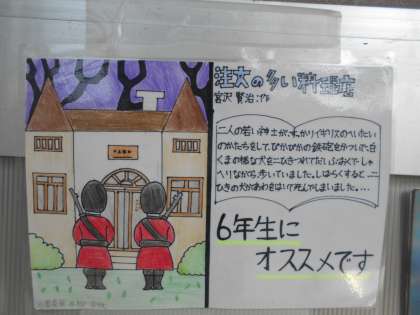 注文の多い料理店
宮沢 賢治:作
二人の若い紳士が、すっかりイギリスのへいたい
のかたちをして、ぴかぴかの鉄砲をかついで、白
くまの様な犬を二ひきつれてだいぶ山おくで、しゃ
べりながら歩いていました。しばらくすると、二
ひきの犬があわをはいて死んでしまいました。...
6年生に
オススメです